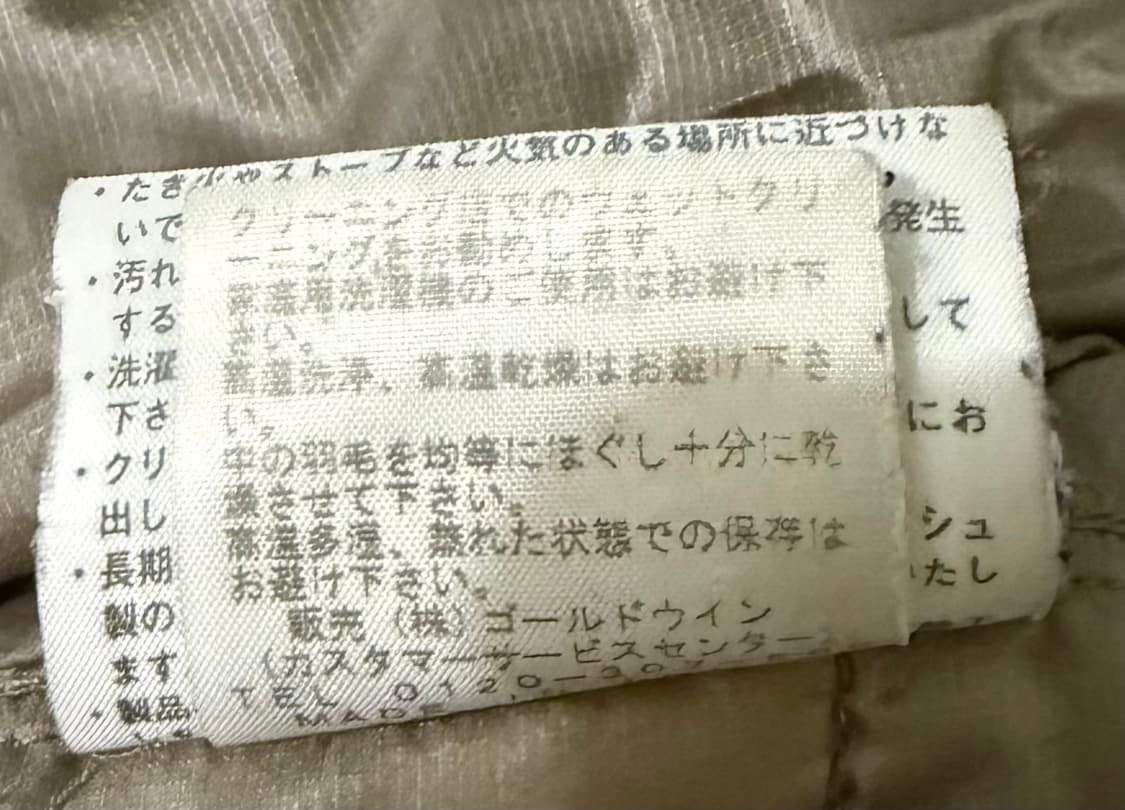 ・たき火やストーブなど火気のある場所に近づけな
いで
発生
・汚れ
する
して
・洗濯
下さ
にお
・クリ
出し
シュ
・長期
たし
製の
ます
・製品
クリーニング店でのウェットクリ
ーニングをお勧めします。
家庭用洗濯機のご使用はお避け下
さい。
高温洗浄、高温乾燥はお避け下さ
い。
中の羽毛を均等にほぐし十分に乾
燥させて下さい。
高温多湿、濡れた状態での保存は
お避け下さい。
販売（株）ゴールドウイン
（カスタマーサービスセンター
TEL 0120-307
MADE